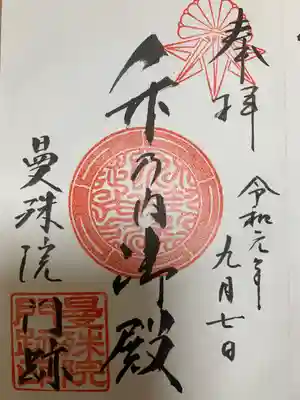 奉拝
令和元年
九月七日
竹乃内御殿
曼殊院門跡
曼殊院
門跡